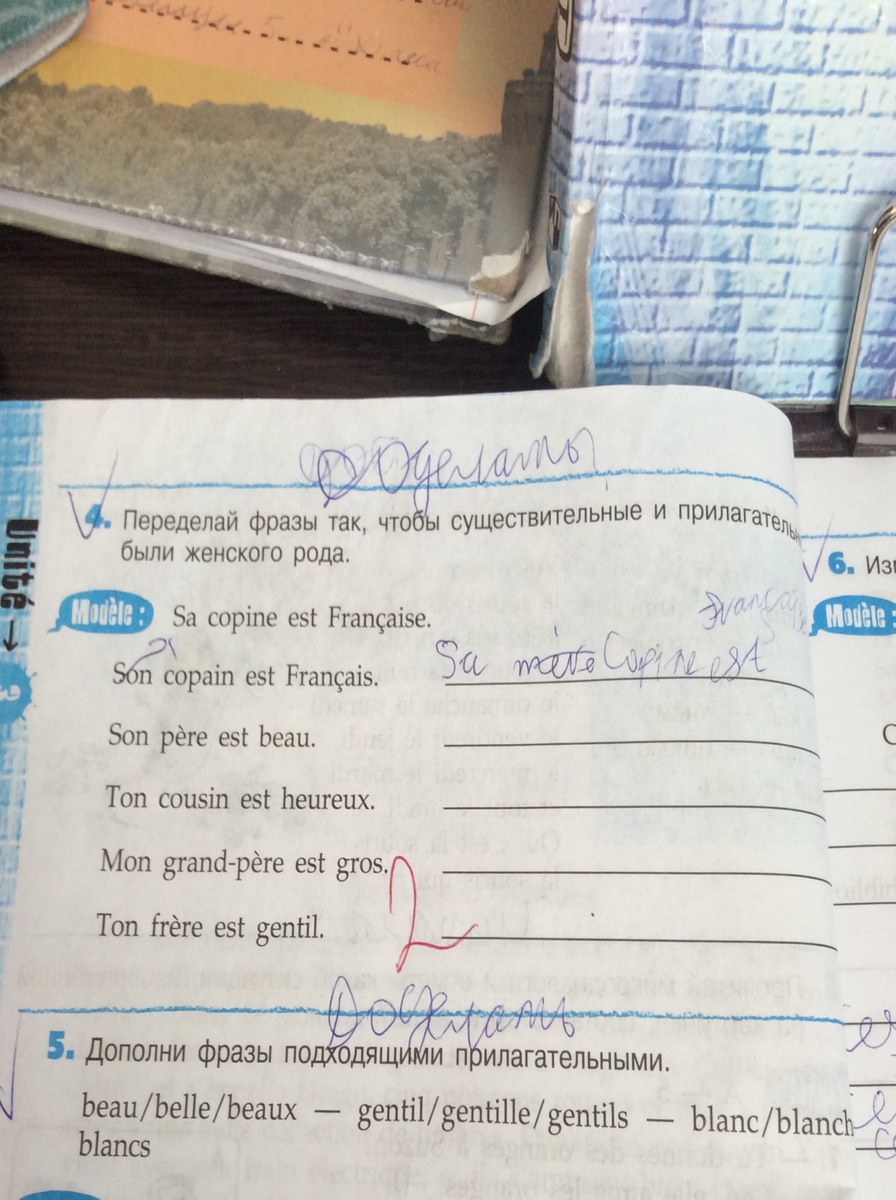 5
класса
Доделать
4. Переделай фразы так, чтобы существительные и прилагательн
были женского рода.
Modèle : Sa copine est Française.
Son copain est Français. Sa copine est
Son père est beau.
Ton cousin est heureux.
Mon grand-père est gros.
2
Ton frère est gentil.
Доделать
5. Дополни фразы подходящими прилагательными.
beau/belle/beaux — gentil/gentille/gentils — blanc/blanch
blancs
Unité → 3
6. Из
Modèle :